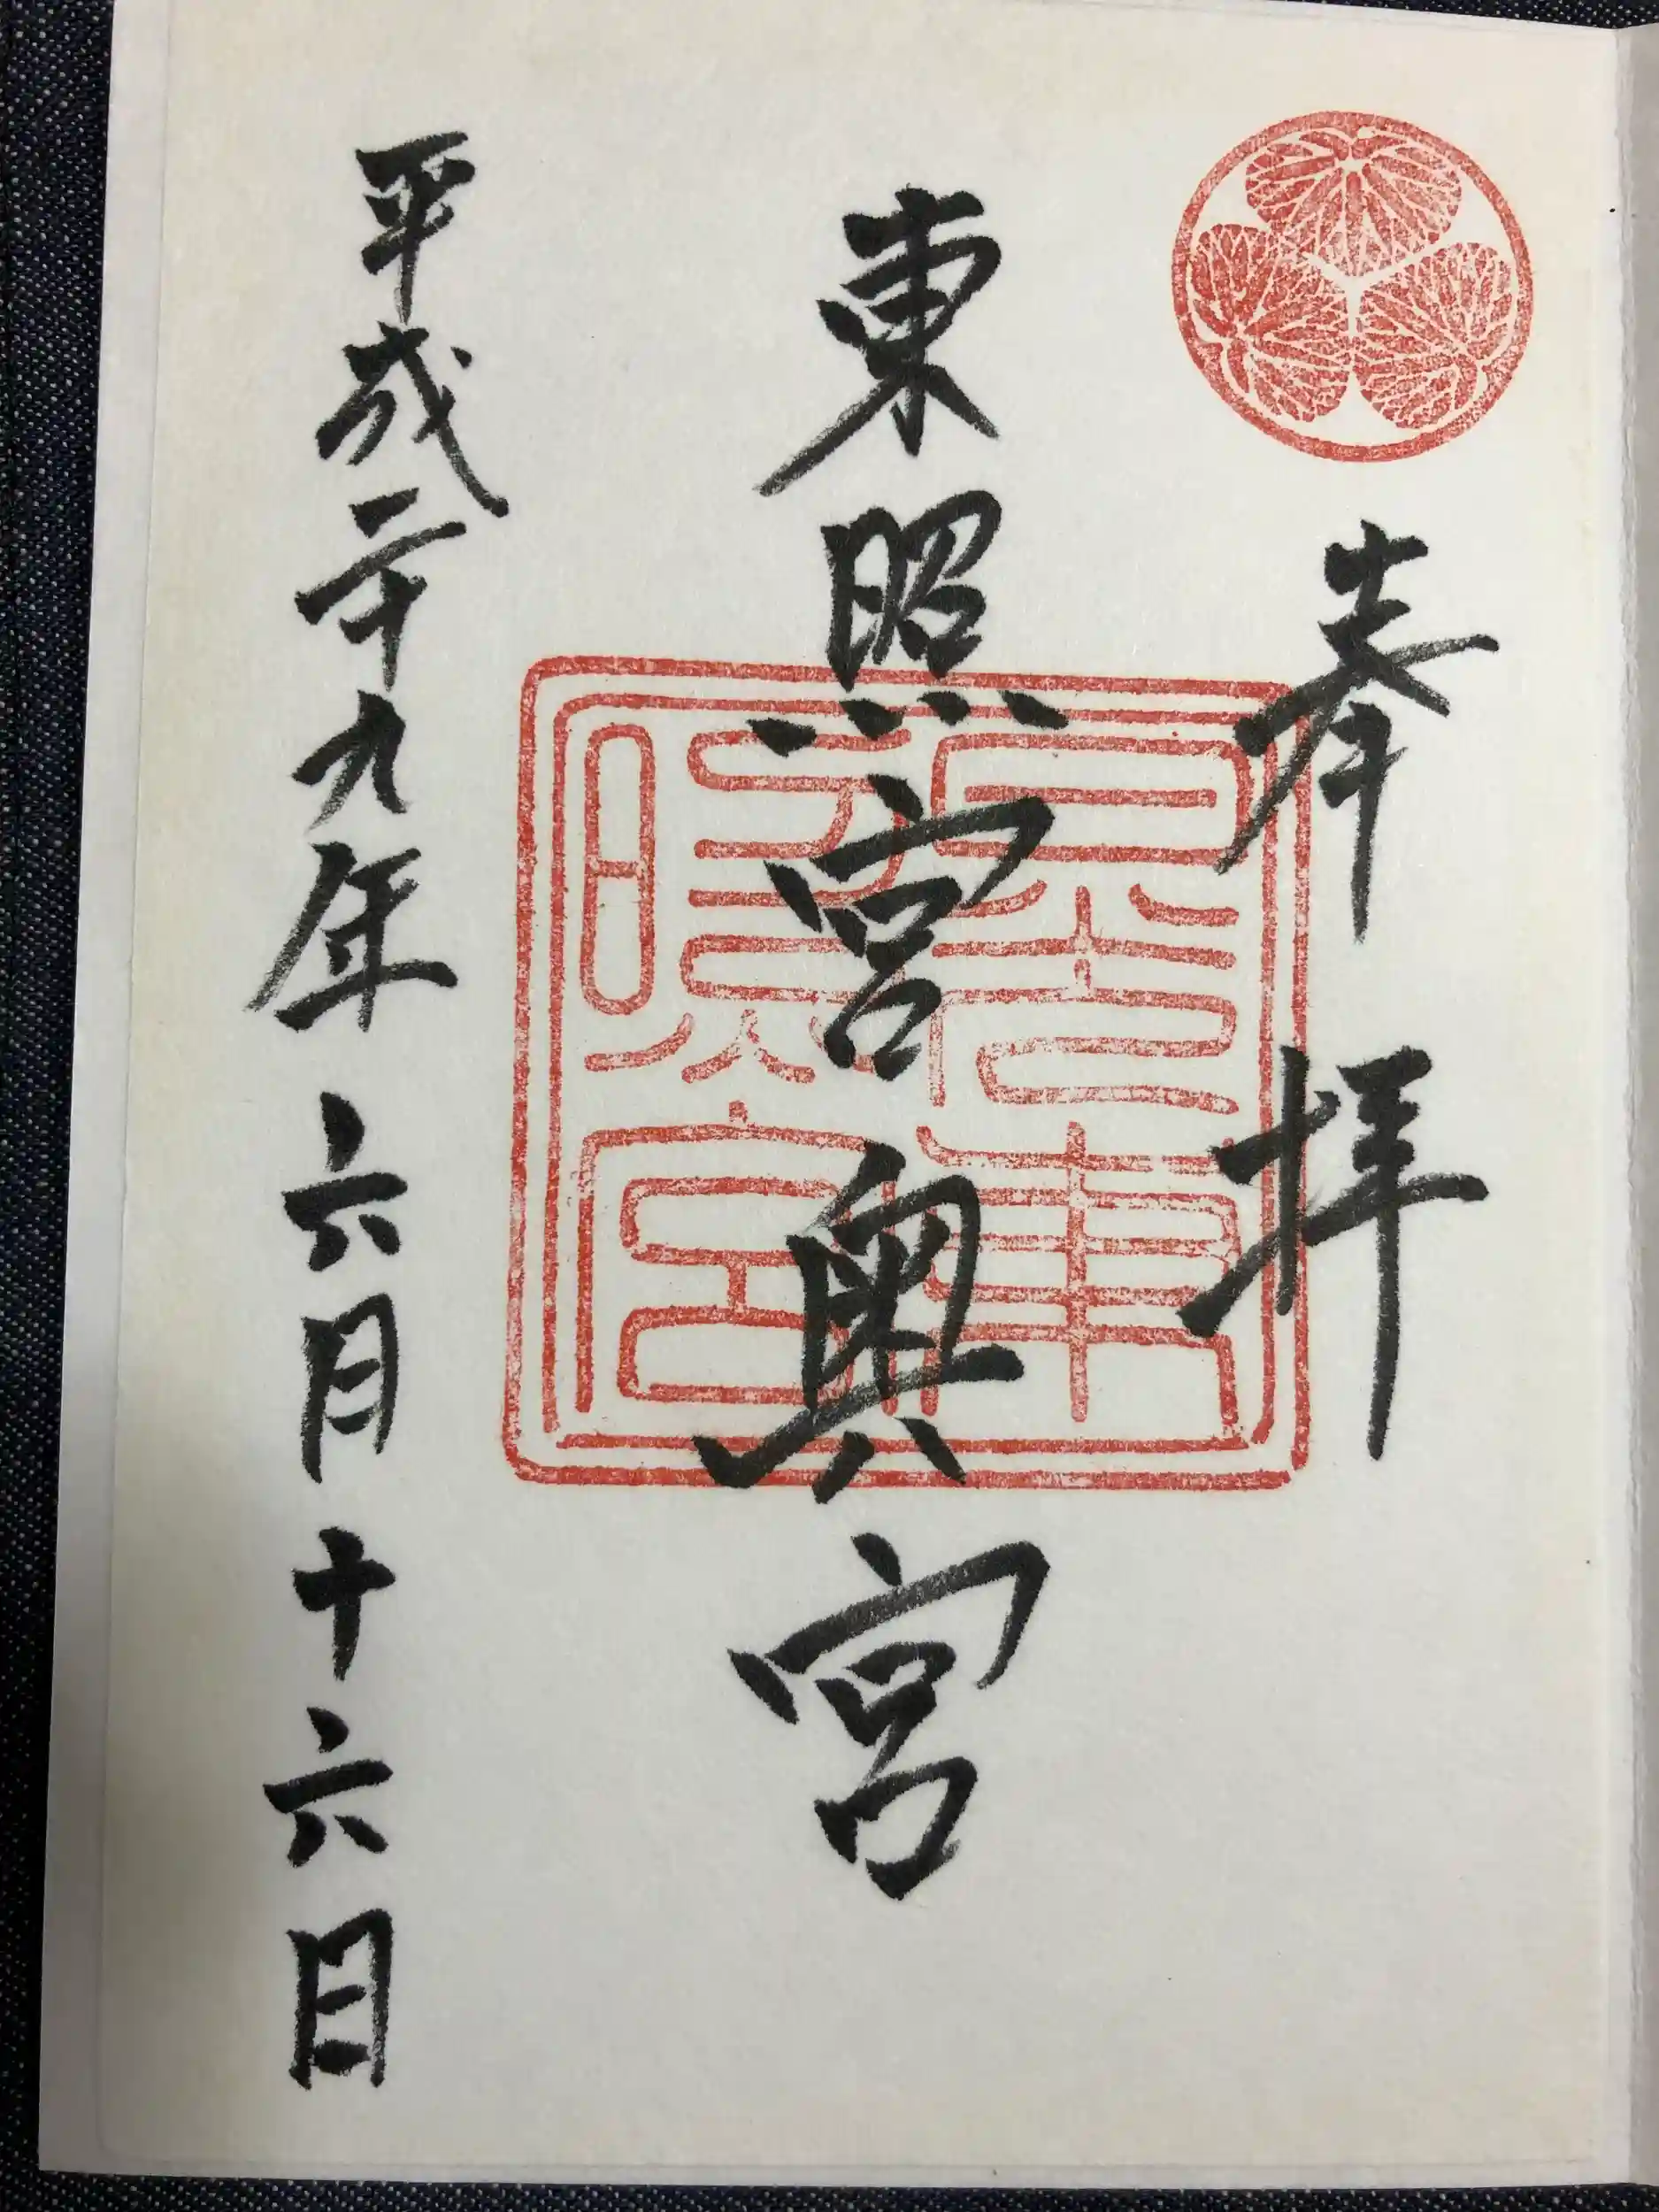 奉拝
東照宮奥宮
平成二十九年六月十六日